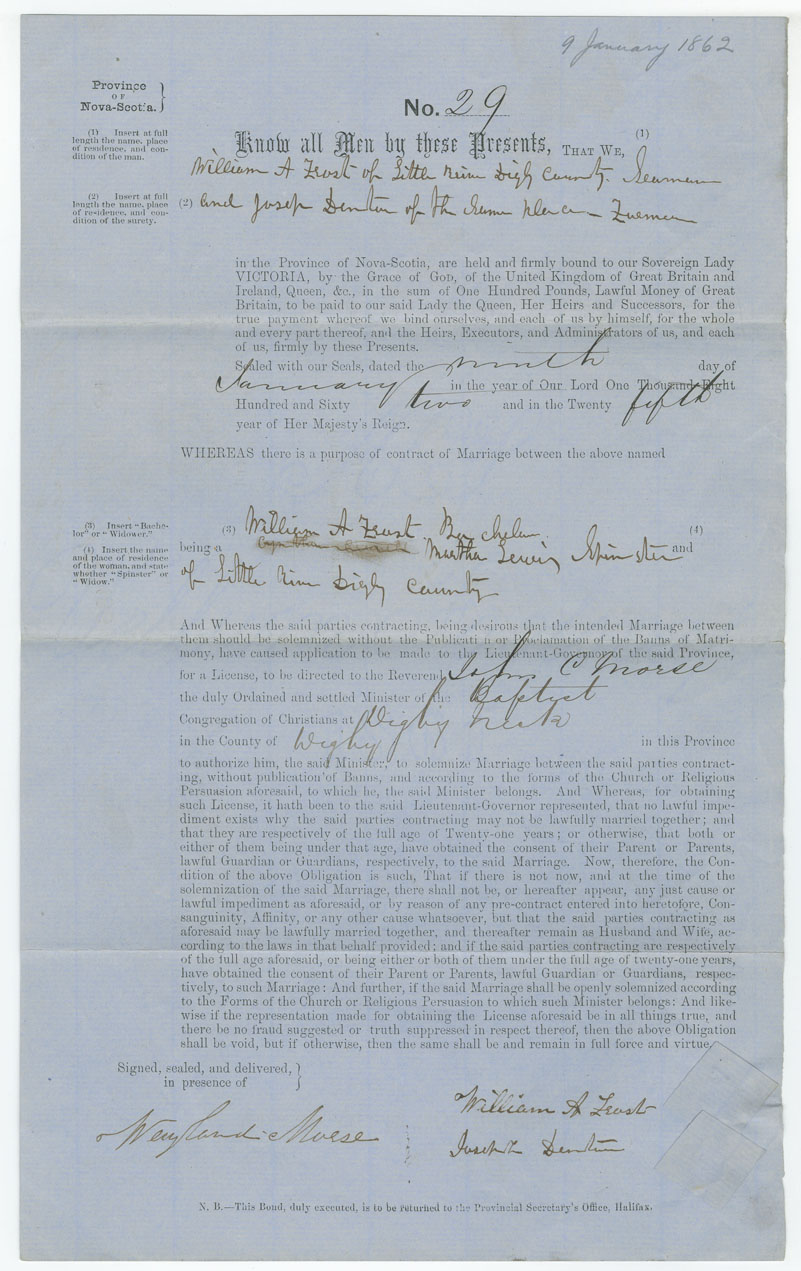 9 January 1862
Province
OF
Nova-Scotia.
No. 29
(1) Insert at full
length the name, place
of residence, and con-
dition of the man.
Know all Men by these Presents, THAT WE, (1)
William A Frost of Little River Digby County. Seaman
(2) Insert at full
length the name, place
of residence, and con-
dition of the surety.
(2) and Joseph Denton of the Same place
in the Province of Nova-Scotia, are held and firmly bound to our Sovereign Lady
VICTORIA, by the Grace of God, of the United Kingdom of Great Britain and
Ireland, Queen, &c., in the sum of One Hundred Pounds, Lawful Money of Great
Britain, to be paid to our said Lady the Queen, Her Heirs and Successors, for the
true payment whereof we bind ourselves, and each of us by himself, for the whole
and every part thereof, and the Heirs, Executors, and Administrators of us, and each
of us, firmly by these Presents.
Sealed with our Seals, dated the ninth day of
January in the year of Our Lord One Thousand Eight
Hundred and Sixty two and in the Twenty fifth
year of Her Majesty's Reign.
WHEREAS there is a purpose of contract of Marriage between the above named
(3) Insert "Bache-
lor" or "Widower."
(4) Insert the name
and place of residence
of the woman, and state
whether "Spinster" or
"Widow."
(3) William A Frost Bachelor (4)
being a Martha Lewis Spinster and
of Little River Digby County
And Whereas the said parties contracting, being desirous that the intended Marriage between
them should be solemnized without the Publication or Proclamation of the Banns of Matri-
mony, have caused application to be made to the Lieutenant-Governor of the said Province,
for a License, to be directed to the Reverend John C Morse
the duly Ordained and settled Minister of the Baptist
Congregation of Christians at Digby Neck
in the County of Digby in this Province
to authorize him, the said Minister, to solemnize Marriage between the said parties contract-
ing, without publication of Banns, and according to the forms of the Church or Religious
Persuasion aforesaid, to which he, the said Minister belongs. And Whereas, for obtaining
such License, it hath been to the said Lieutenant-Governor represented, that no lawful impe-
diment exists why the said parties contracting may not be lawfully married together; and
that they are respectively of the full age of Twenty-one years; or otherwise, that both or
either of them being under that age, have obtained the consent of their Parent or Parents,
lawful Guardian or Guardians, respectively, to the said Marriage. Now, therefore, the Con-
dition of the above Obligation is such, That if there is not now, and at the time of the
solemnization of the said Marriage, there shall not be, or hereafter appear, any just cause or
lawful impediment as aforesaid, or by reason of any pre-contract entered into heretofore, Con-
sanguinity, Affinity, or any other cause whatsoever, but that the said parties contracting as
aforesaid may be lawfully married together, and thereafter remain as Husband and Wife, ac-
cording to the laws in that behalf provided; and if the said parties contracting are respectively
of the full age aforesaid, or being either or both of them under the full age of twenty-one years,
have obtained the consent of their Parent or Parents, lawful Guardian or Guardians, respec-
tively, to such Marriage: And further, if the said Marriage shall be openly solemnized according
to the Forms of the Church or Religious Persuasion to which such Minister belongs: And like-
wise if the representation made for obtaining the License aforesaid be in all things true, and
there be no fraud suggested or truth suppressed in respect thereof, then the above Obligation
shall be void, but if otherwise, then the same shall be and remain in full force and virtue.
Signed, sealed, and delivered,
in presence of
William A Frost
Wayland Morse
Joseph Denton
N. B.—This Bond, duly executed, is to be returned to the Provincial Secretary's Office, Halifax.